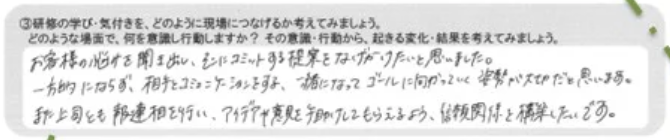 ③研修の学び・気付きを、どのように現場につなげるか考えてみましょう。
どのような場面で、何を意識し行動しますか？ その意識・行動から、起きる変化・結果を考えてみましょう。
お客様の悩みを聞き出し、そこにコミットする提案をなげかけたいと思いました。
一方的にならず、相手とコミュニケーションをとり、一緒になって ゴールに向かっていく 姿勢が大切だと思います。
また上司とも 報連相を行い、アイデアや意見を手助けしてもらえるよう、信頼関係を構築したいです。